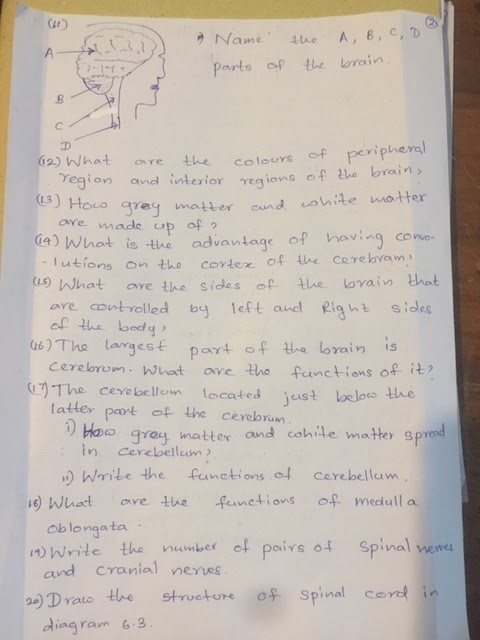 (2)
(11)
A
B
C
D
i) Name the A, B, C, D
parts of the brain.
(12) What are the colours of peripheral
region and interior regions of the brain?
(13) How grey matter and white matter
are made up of?
(14) What is the advantage of having convo-
-lutions on the cortex of the cerebram?
(15) What are the sides of the brain that
are controlled by left and Right sides
of the body?
(16) The largest part of the brain is
cerebrum. What are the functions of it?
(17) The cerebellum located just below the
latter part of the cerebrum.
i) How grey matter and white matter spread
in cerebellum?
ii) Write the functions of cerebellum.
18) What are the functions of medulla
oblongata.
19) Write the number of pairs of spinal nerves
and cranial nerves.
20) Draw the structure of spinal cord in
diagram 6.3.